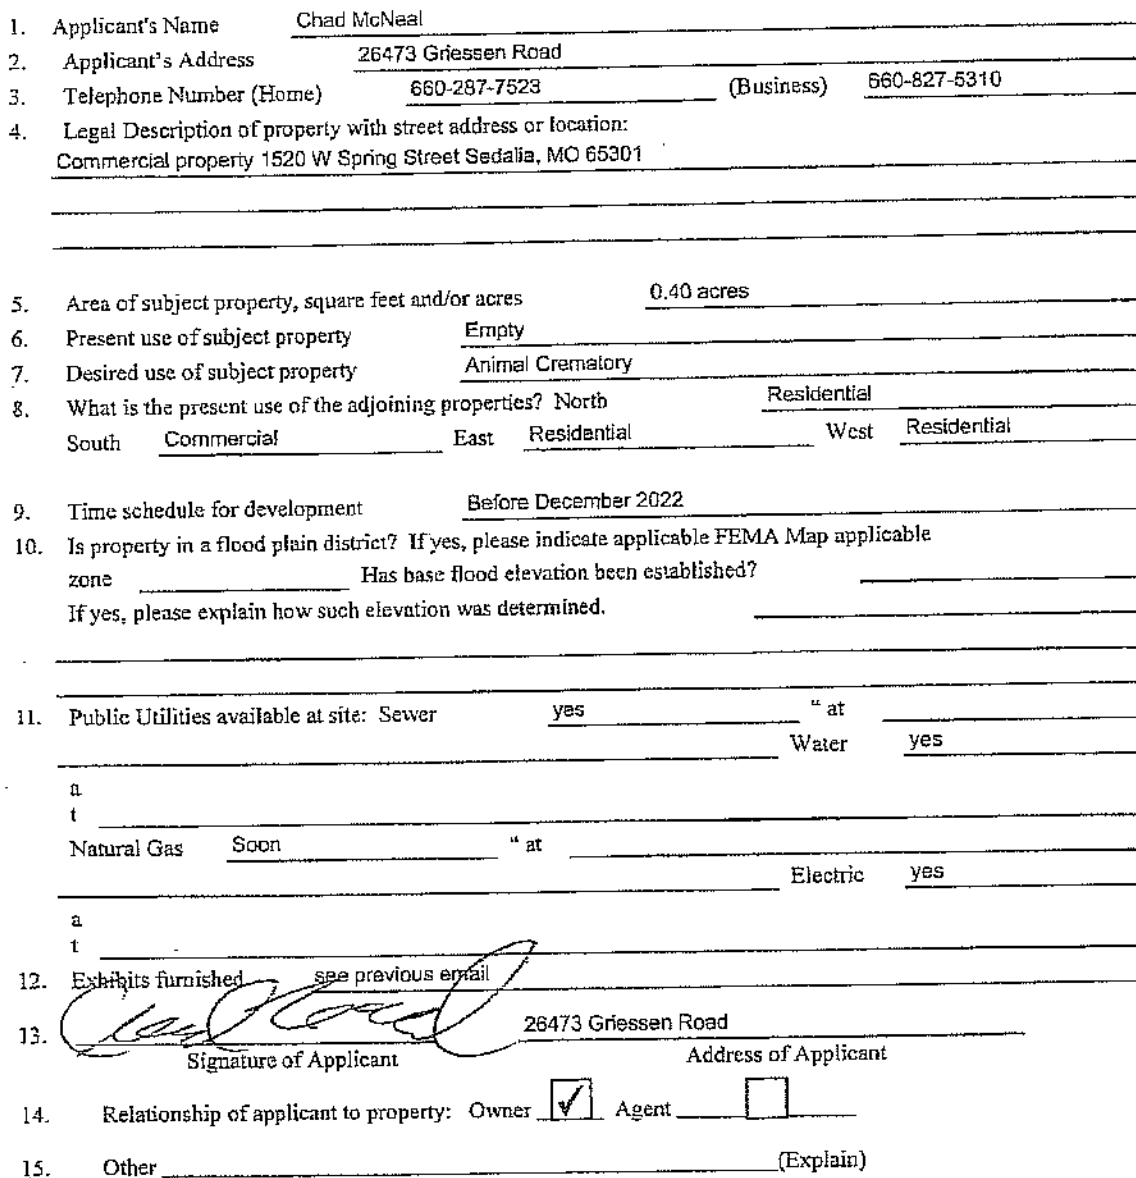 1. Applicant's Name Chad McNeal
2. Applicant's Address 26473 Griessen Road
3. Telephone Number (Home) 660-287-7523 (Business) 660-827-5310
4. Legal Description of property with street address or location:
Commercial property 1520 W Spring Street Sedalia, MO 65301
5. Area of subject property, square feet and/or acres 0.40 acres
6. Present use of subject property Empty
7. Desired use of subject property Animal Crematory
8. What is the present use of the adjoining properties? North Residential
South Commercial East Residential West Residential
9. Time schedule for development Before December 2022
10. Is property in a flood plain district? If yes, please indicate applicable FEMA Map applicable
zone Has base flood elevation been established?
If yes, please explain how such elevation was determined.
11. Public Utilities available at site: Sewer yes " at
Water yes
a
t
Natural Gas Soon " at
Electric yes
a
t
12. Exhibits furnished see previous email
13. 26473 Griessen Road
Signature of Applicant Address of Applicant
14. Relationship of applicant to property: Owner ✓ Agent
15. Other (Explain)